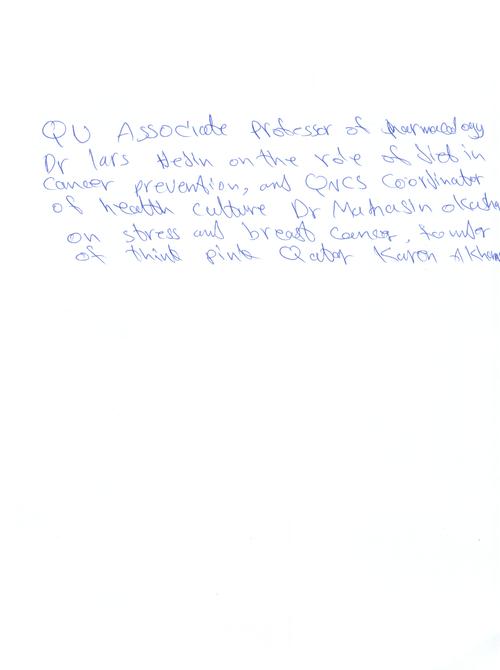 QU Associate Professor of pharmacology
Dr lars Hedin on the role of diet in
cancer prevention, and QNCS Coordinator
of health culture Dr Mahasin okasha
on stress and breast cancer, founder
of think pink Qatar Karen